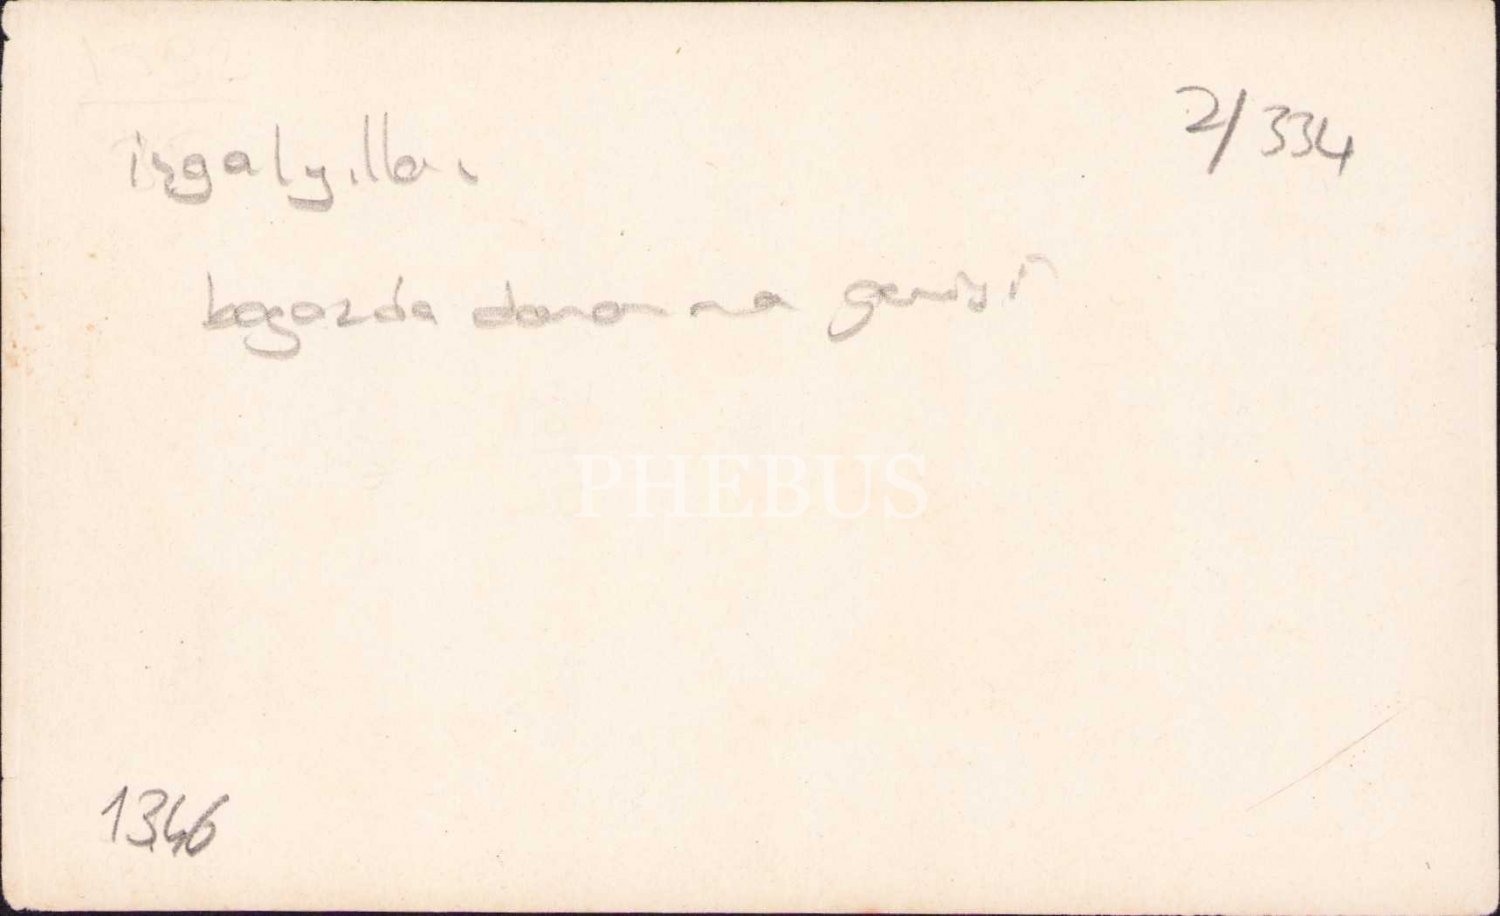 2/334
işgal yılları
bogazda donanma gemisi
PHEBUS
1346